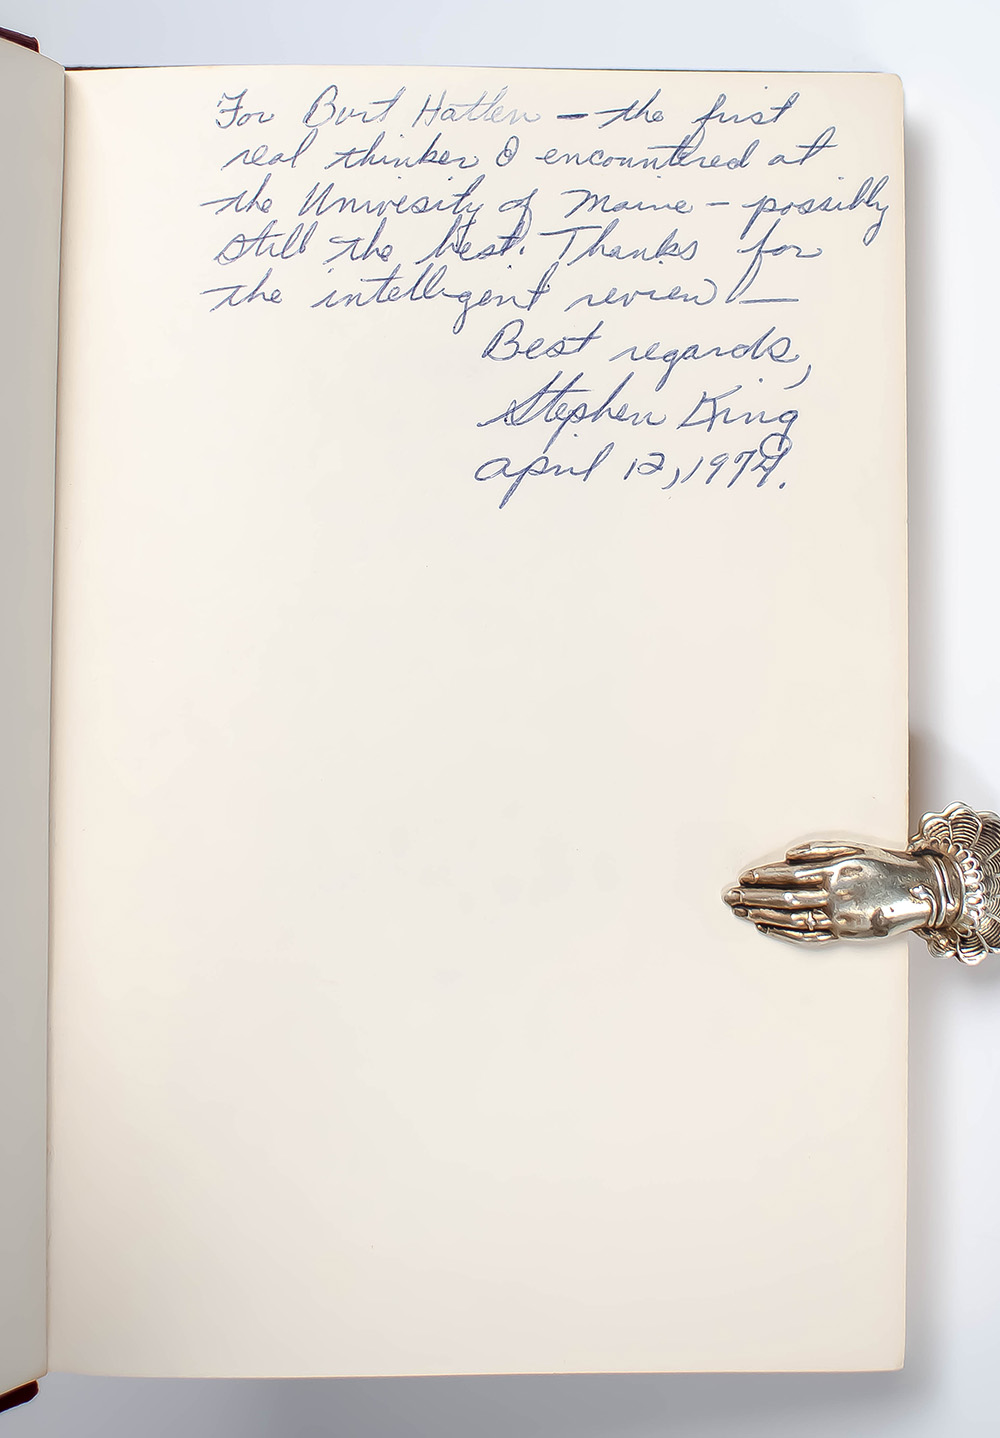 For Burt Hatlen – the first
real thinker I encountered at
the Univesity of Maine – possibly
still the best. Thanks for
the intelligent review —
Best regards,
Stephen King
April 12, 1974.